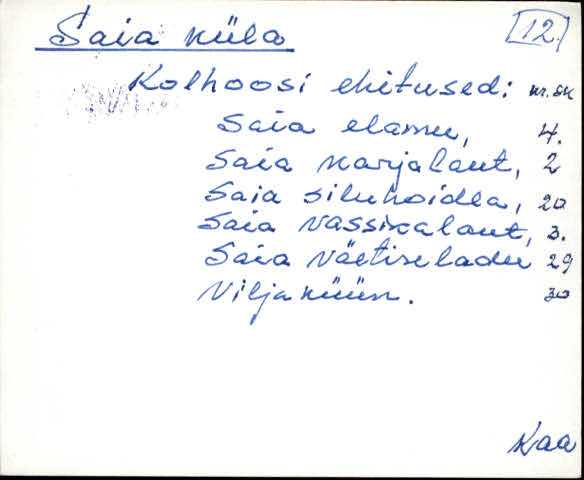 Saia küla 12.
Kolhoosi ehitused: nr. sk
Saia elamu, 4.
Saia karjalaut, 2
Saia siluhoidla, 20
Saia vassikalaut, 3.
Saia väetiseladu 29
Viljaküün. 30
Kaa